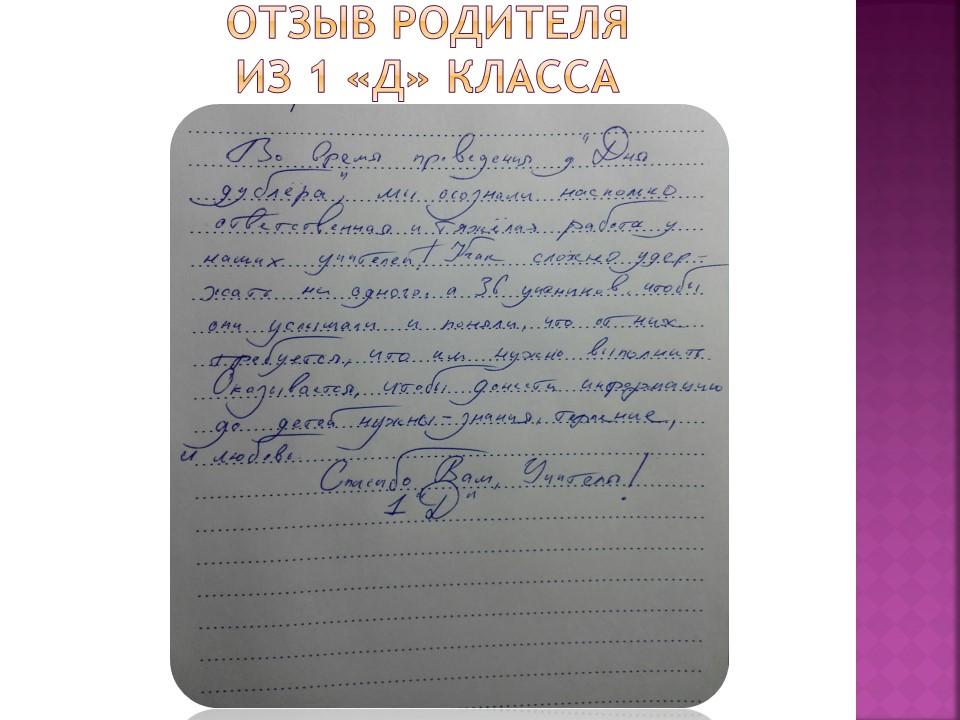 ОТЗЫВ РОДИТЕЛЯ
ИЗ 1 «Д» КЛАССА
Во время проведения "Дня
дублёра", мы осознали насколько
ответственная и тяжёлая работа у
наших учителей! Как сложно удер-
жать не одного, а 36 учеников, чтобы
они услышали и поняли, что от них
требуется, что им нужно выполнить.
Оказывается, чтобы донести информацию
до детей нужны - знания, терпение,
и любовь.
Спасибо Вам, Учителя!
1 "Д"